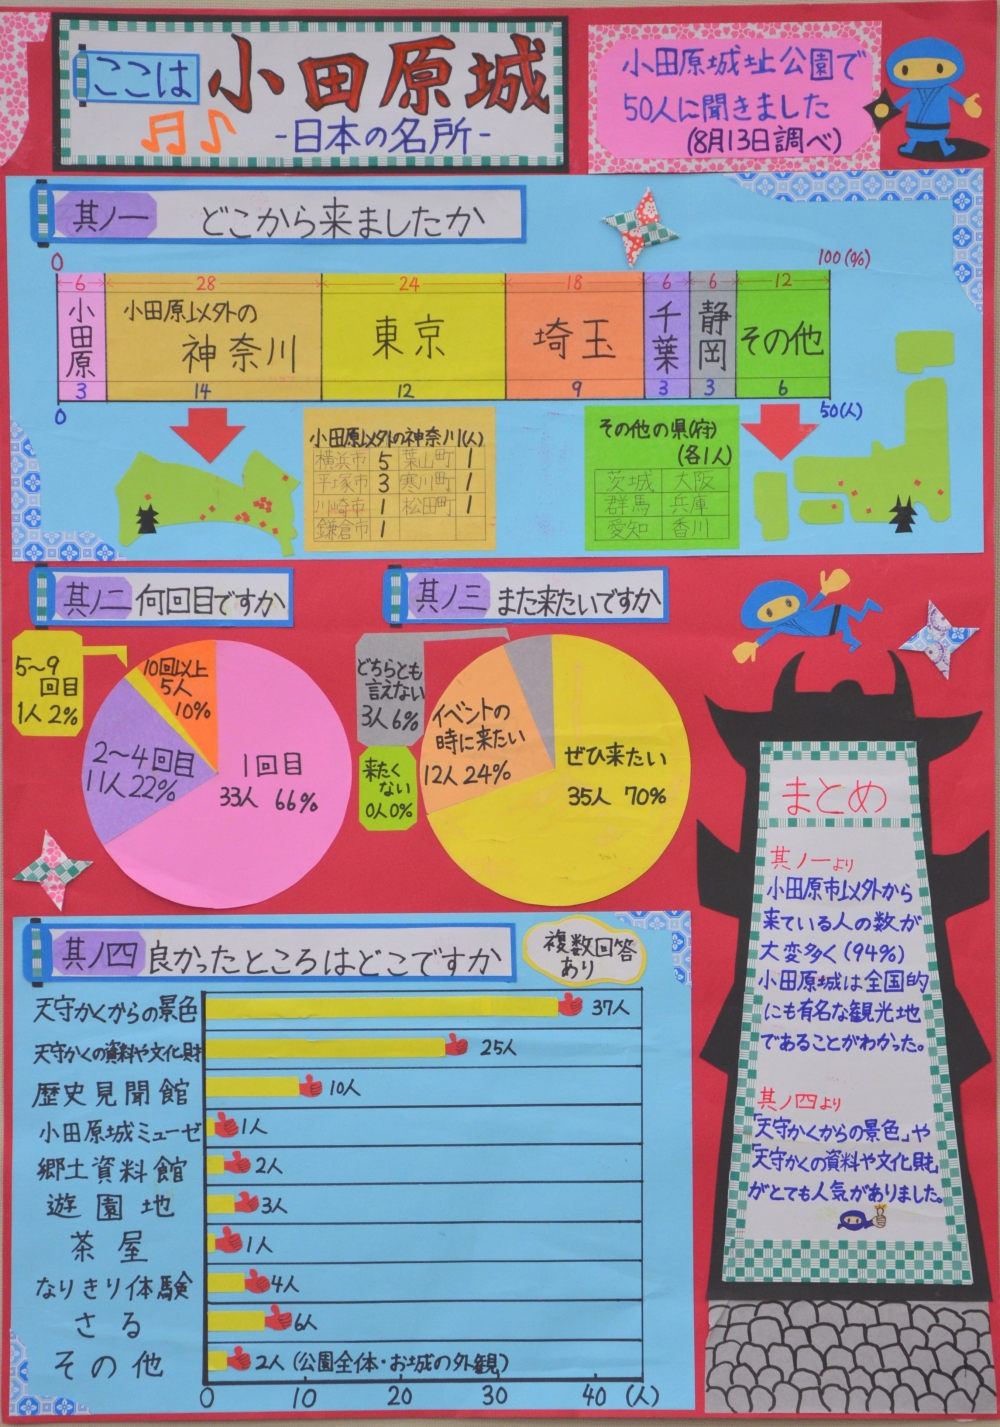 ここは
小田原城
-日本の名所-
小田原城址公園で
50人に聞きました
(8月13日調べ)
其ノ一 どこから来ましたか
0 100(%)
6 28 24 18 6 6 12
小田原
小田原以外の
神奈川
東京
埼玉
千葉
静岡
その他
3 14 12 9 3 3 6
0 50(人)
小田原以外の神奈川(人)
横浜市 5 葉山町 1
平塚市 3 寒川町 1
川崎市 1 松田町 1
鎌倉市 1
その他の県(府)
(各1人)
茨城 大阪
群馬 兵庫
愛知 香川
其ノ二 何回目ですか
5〜9
回目
1人 2%
10回以上
5人
10%
2〜4回目
11人 22%
1回目
33人 66%
其ノ三 また来たいですか
どちらとも
言えない
3人 6%
来たく
ない
0人0%
イベントの
時に来たい
12人 24%
ぜひ来たい
35人 70%
其ノ四 良かったところはどこですか
複数回答
あり
天守かくからの景色 37人
天守かくの資料や文化財 25人
歴史見聞館 10人
小田原城ミューゼ 1人
郷土資料館 2人
遊園地 3人
茶屋 1人
なりきり体験 4人
さる 6人
その他 2人(公園全体・お城の外観)
0 10 20 30 40 (人)
まとめ
其ノ一より
小田原市以外から
来ている人の数が
大変多く(94%)
小田原城は全国的
にも有名な観光地
であることがわかった。
其ノ四より
「天守かくからの景色」や
「天守かくの資料や文化財」
がとても人気がありました。